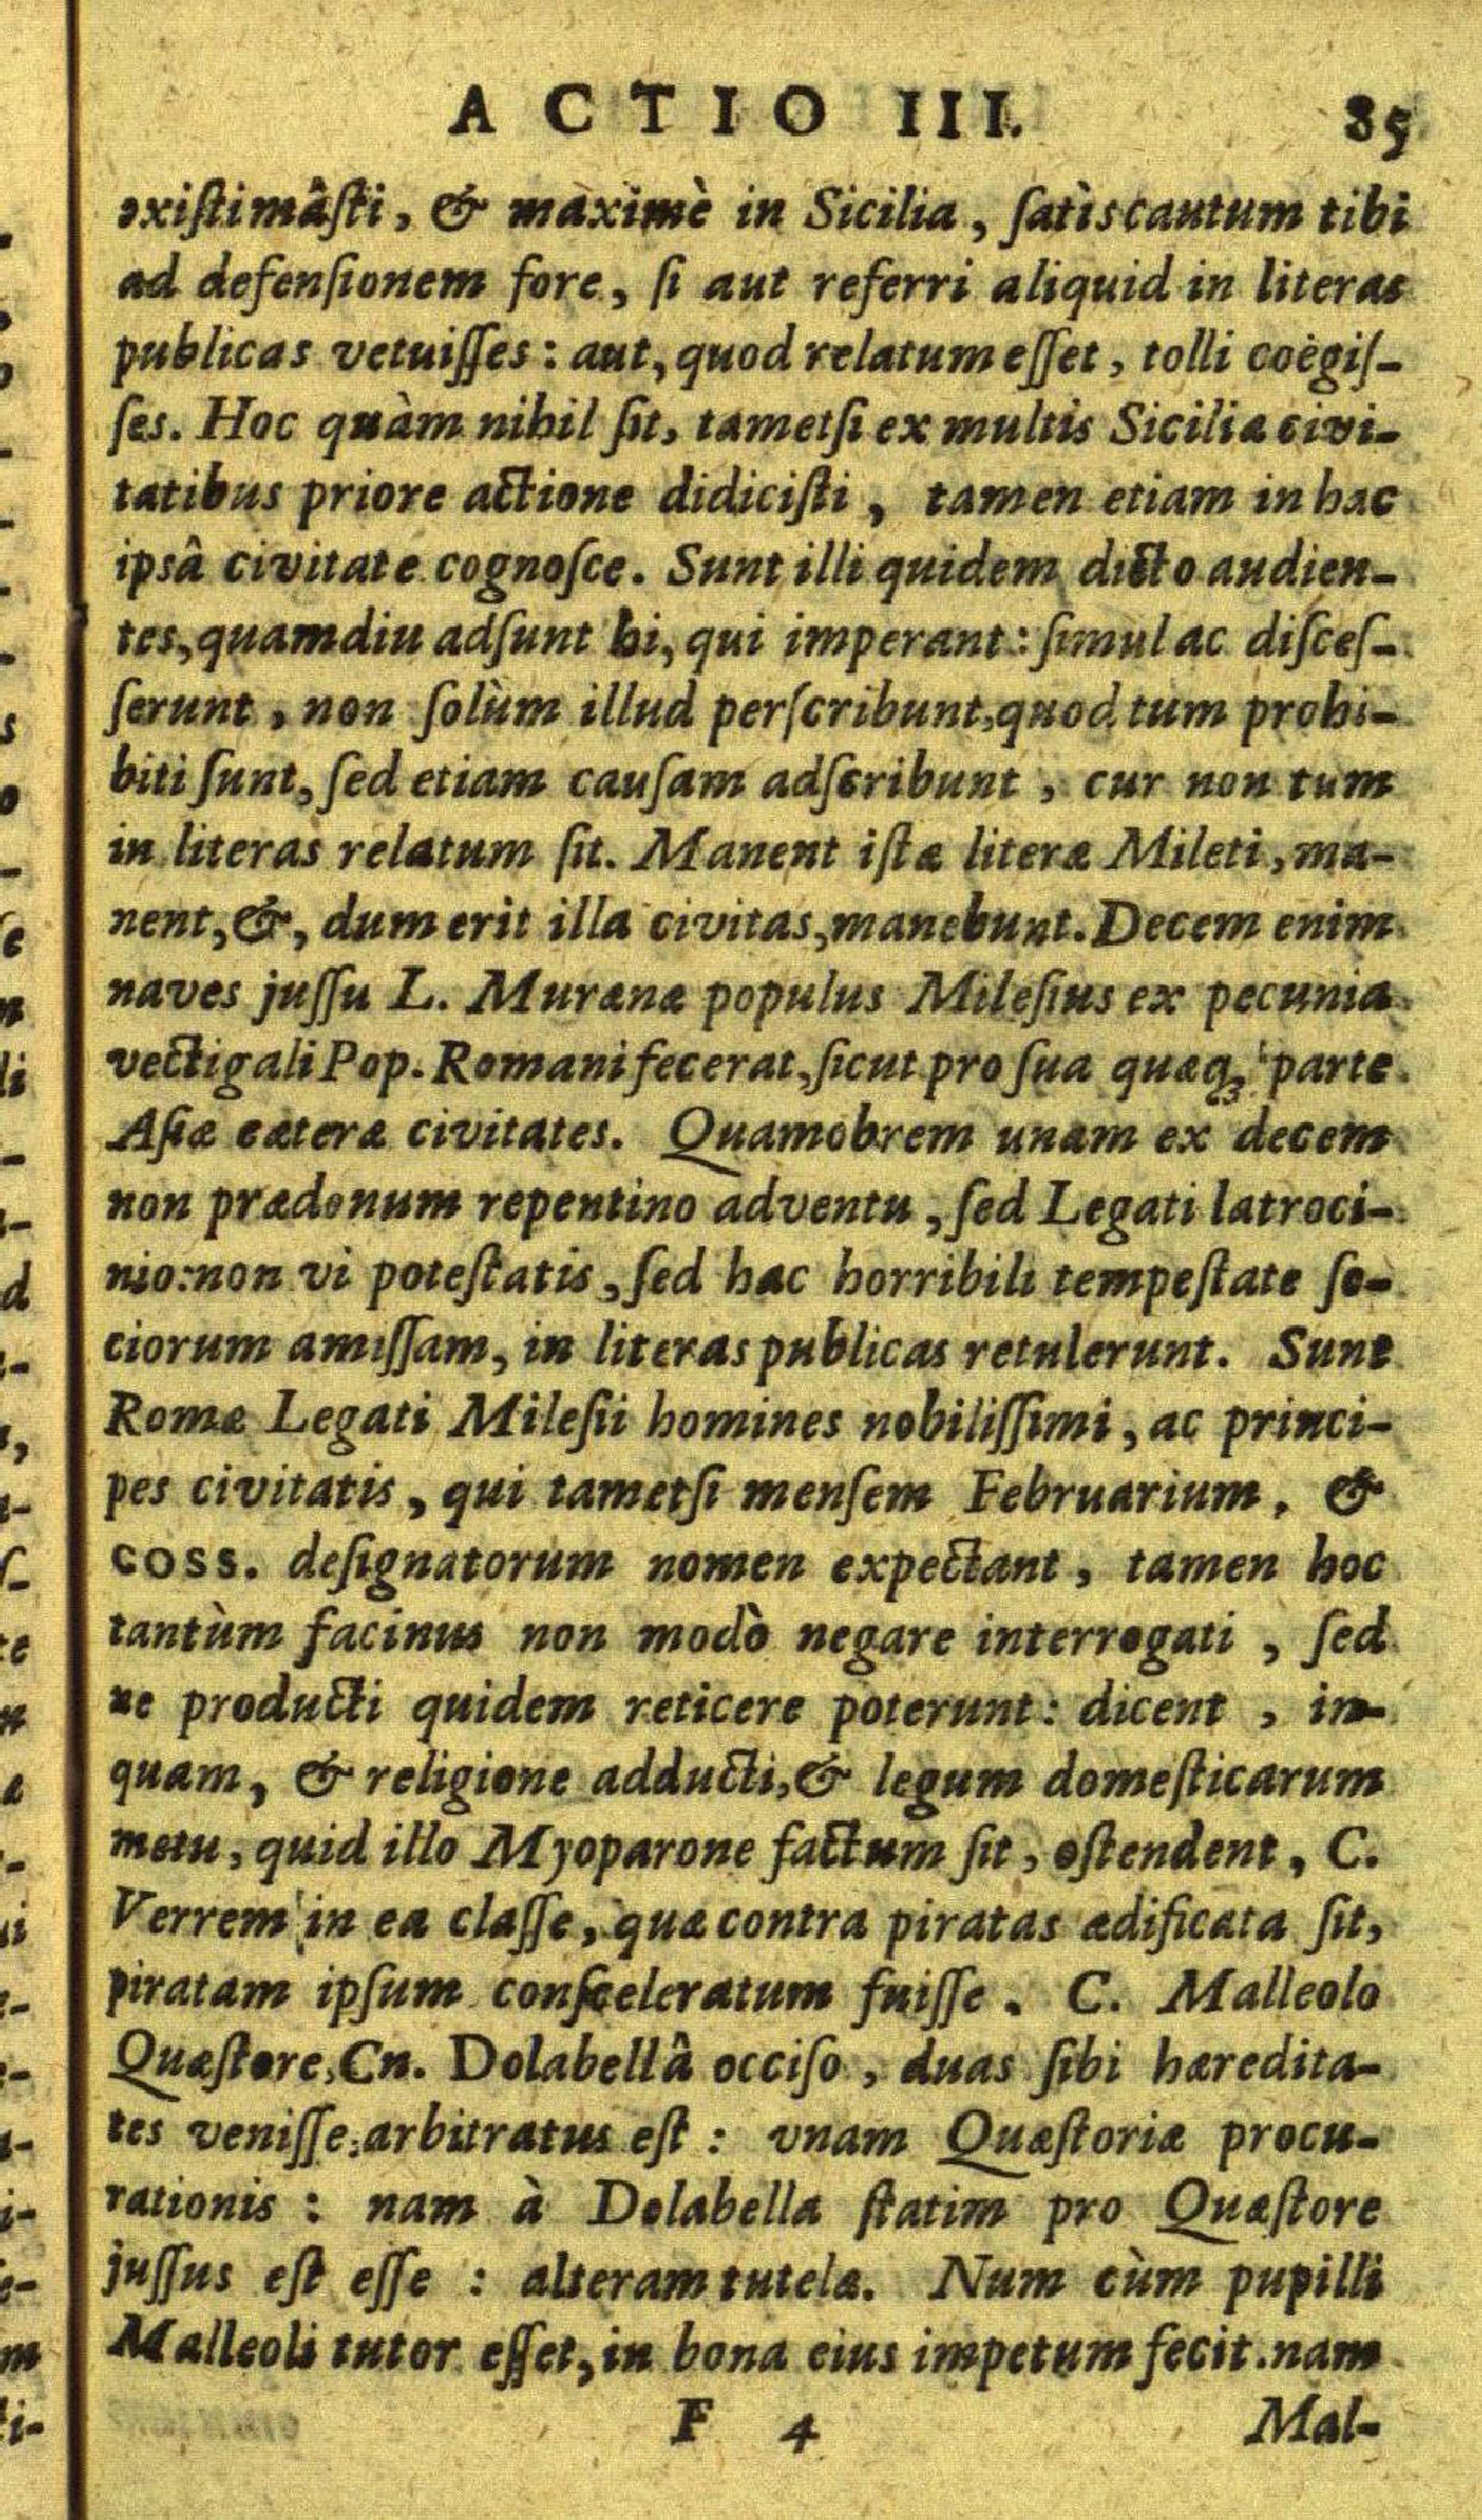 ACTIO III. 85
existimâsti, & maximè in Sicilia, satis cautum tibi
ad defensionem fore, si aut referri aliquid in literas
publicas vetuisses: aut, quod relatum esset, tolli coëgis-
ses. Hoc quàm nihil sit, tametsi ex multis Siciliæ civi-
tatibus priore actione didicisti, tamen etiam in hac
ipsâ civitate cognosce. Sunt illi quidem dicto audien-
tes, quamdiu adsunt hi, qui imperant: simul ac disces-
serunt, non solùm illud perscribunt, quod tum prohi-
biti sunt, sed etiam causam adscribunt, cur non tum
in literas relatum sit. Manent istæ literæ Mileti, ma-
nent, &, dum erit illa civitas, manebunt. Decem enim
naves jussu L. Murænæ populus Milesius ex pecunia
vectigali Pop. Romani fecerat, sicut pro sua quæq; parte
Asiæ cæteræ civitates. Quamobrem unam ex decem
non prædonum repentino adventu, sed Legati latroci-
nio: non vi potestatis, sed hac horribili tempestate so-
ciorum amissam, in literas publicas retulerunt. Sunt
Romæ Legati Milesii homines nobilissimi, ac princi-
pes civitatis, qui tametsi mensem Februarium, &
COSS. designatorum nomen expectant, tamen hoc
tantùm facinus non modò negare interrogati, sed
ne producti quidem reticere poterunt: dicent, in-
quam, & religione adducti, & legum domesticarum
metu, quid illo Myoparone factum sit, ostendent, C.
Verrem in ea classe, quæ contra piratas ædificata sit,
piratam ipsum consceleratum fuisse. C. Malleolo
Quæstore, Cn. Dolabellâ occiso, duas sibi hæredita-
tes venisse, arbitratus est: vnam Quæstoriæ procu-
rationis: nam à Dolabella statim pro Quæstore
jussus est esse: alteram tutelæ. Num cùm pupilli
Malleoli tutor esset, in bona eius impetum fecit. nam
F 4 Mal-